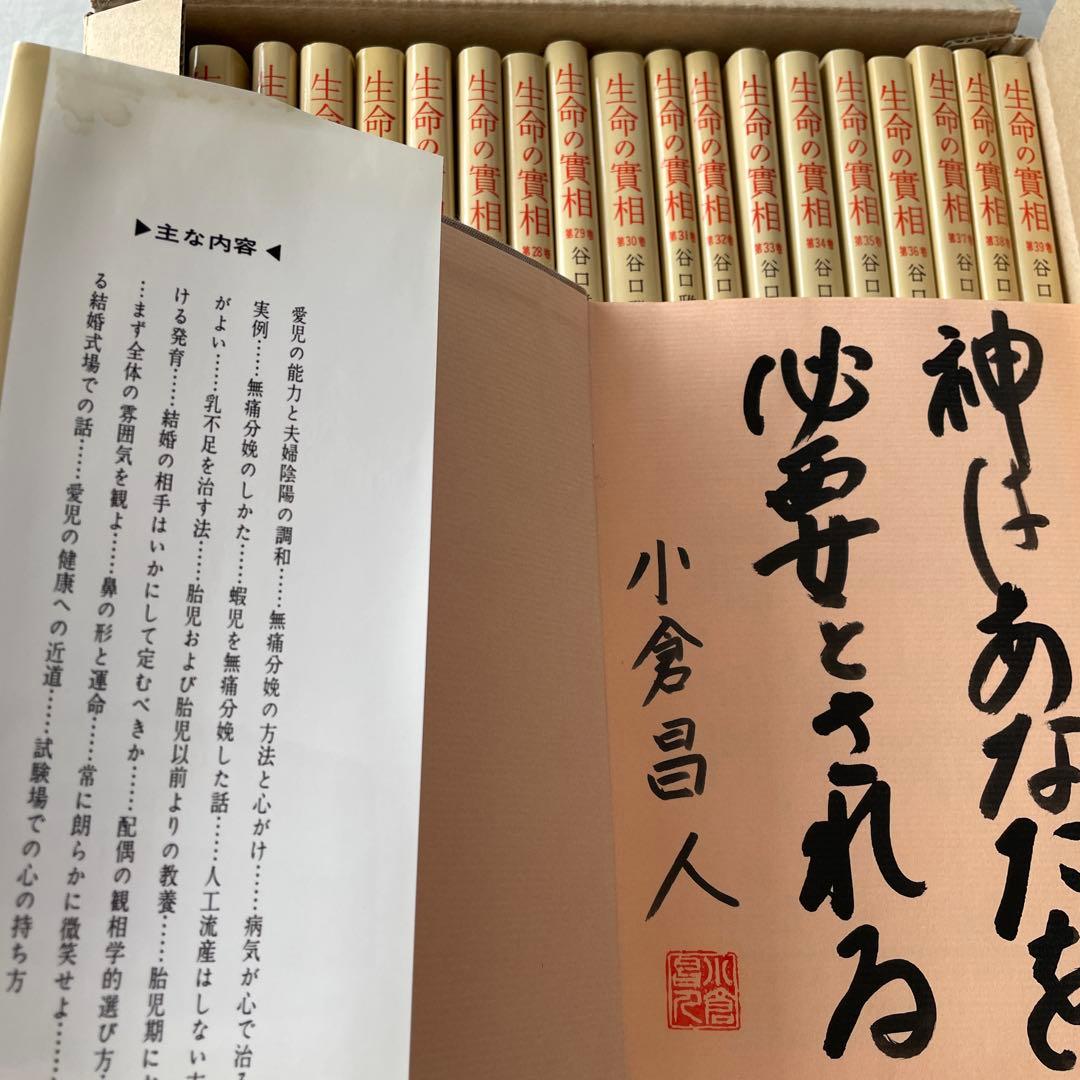 生命
生命
生命
生命
生命の
生命の實相
生命の實相 第28巻
生命の實相 第29巻 谷口
生命の實相 第30巻 谷口
生命の實相 第31巻 谷口
生命の實相 第32巻 谷口
生命の實相 第33巻 谷
生命の實相 第34巻 谷
生命の實相 第35巻 谷
生命の實相 第36巻 谷
生命の實相 第37巻 谷口
生命の實相 第38巻 谷口
生命の實相 第39巻 谷口
▶主な内容◀
愛児の能力と夫婦陰陽の調和……無痛分娩の方法と心がけ……病気が心で治る
実例……無痛分娩のしかた……蝦児を無痛分娩した話……人工流産はしない方
がよい……乳不足を治す法……胎児および胎児以前よりの教養……胎児期にお
ける発育……結婚の相手はいかにして定むべきか……配偶の観相学的選び方…
…まず全体の雰囲気を観よ……鼻の形と運命……常に朗らかに微笑せよ……
る結婚式場での話……愛児の健康への近道……試験場での心の持ち方
神はあなたを
必要とされる
小倉昌人
小倉昌人